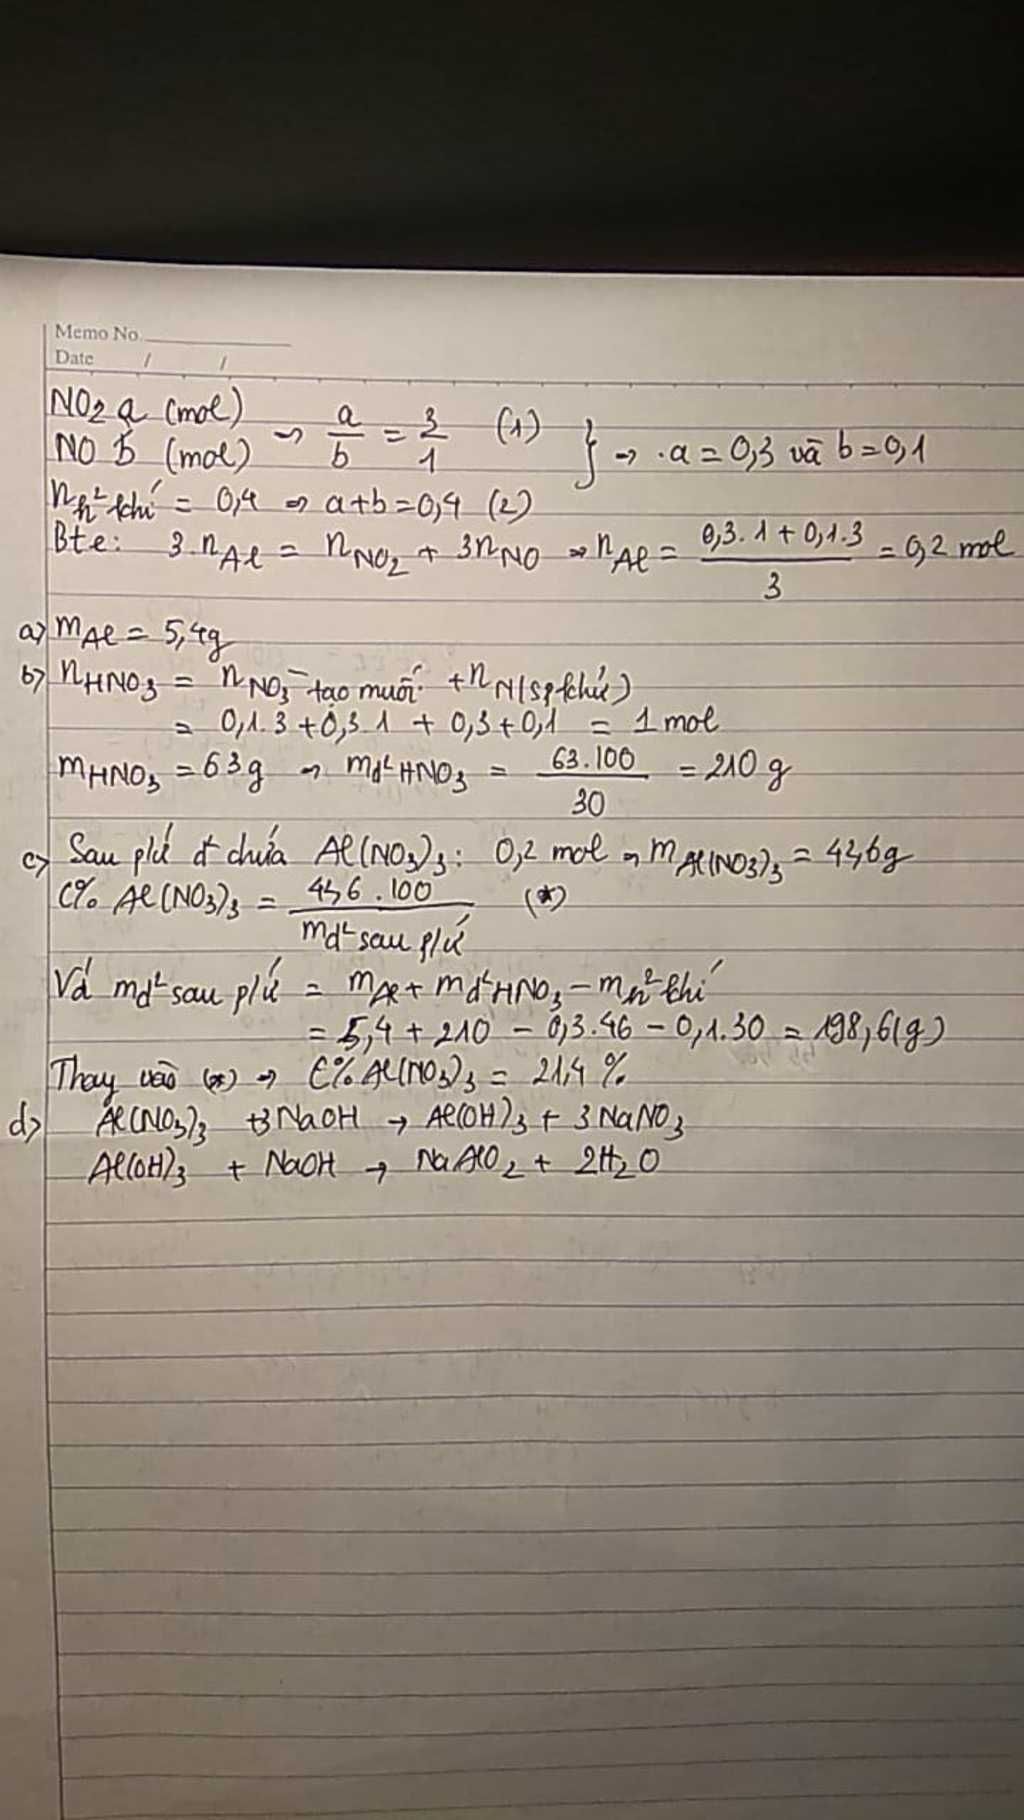 Memo No.
Date / /
NO2 a (mol)
NO b (mol) → a/b = 3/1 (1) } → a = 0,3 và b = 0,1
n h² khí = 0,4 → a+b = 0,4 (2)
Bte: 3.nAl = nNO2 + 3nNO → nAl = (0,3.1 + 0,1.3)/3 = 0,2 mol
a> mAl = 5,4g
b> nHNO3 = nNO3⁻ tạo muối + nN(sp khử)
= 0,1.3 + 0,3.1 + 0,3 + 0,1 = 1 mol
mHNO3 = 63g → md² HNO3 = 63.100/30 = 210 g
c> Sau p/ứ d² chứa Al(NO3)3: 0,2 mol → mAl(NO3)3 = 42,6g
C% Al(NO3)3 = 42,6.100/md² sau p/ứ (*)
Vá md² sau p/ứ = mAl + md² HNO3 − mh² khí
= 5,4 + 210 − 0,3.46 − 0,1.30 = 198,6(g)
Thay vào (*) → C% Al(NO3)3 = 21,4 %
d> Al(NO3)3 + 3NaOH → Al(OH)3 + 3NaNO3
Al(OH)3 + NaOH → NaAlO2 + 2H2O